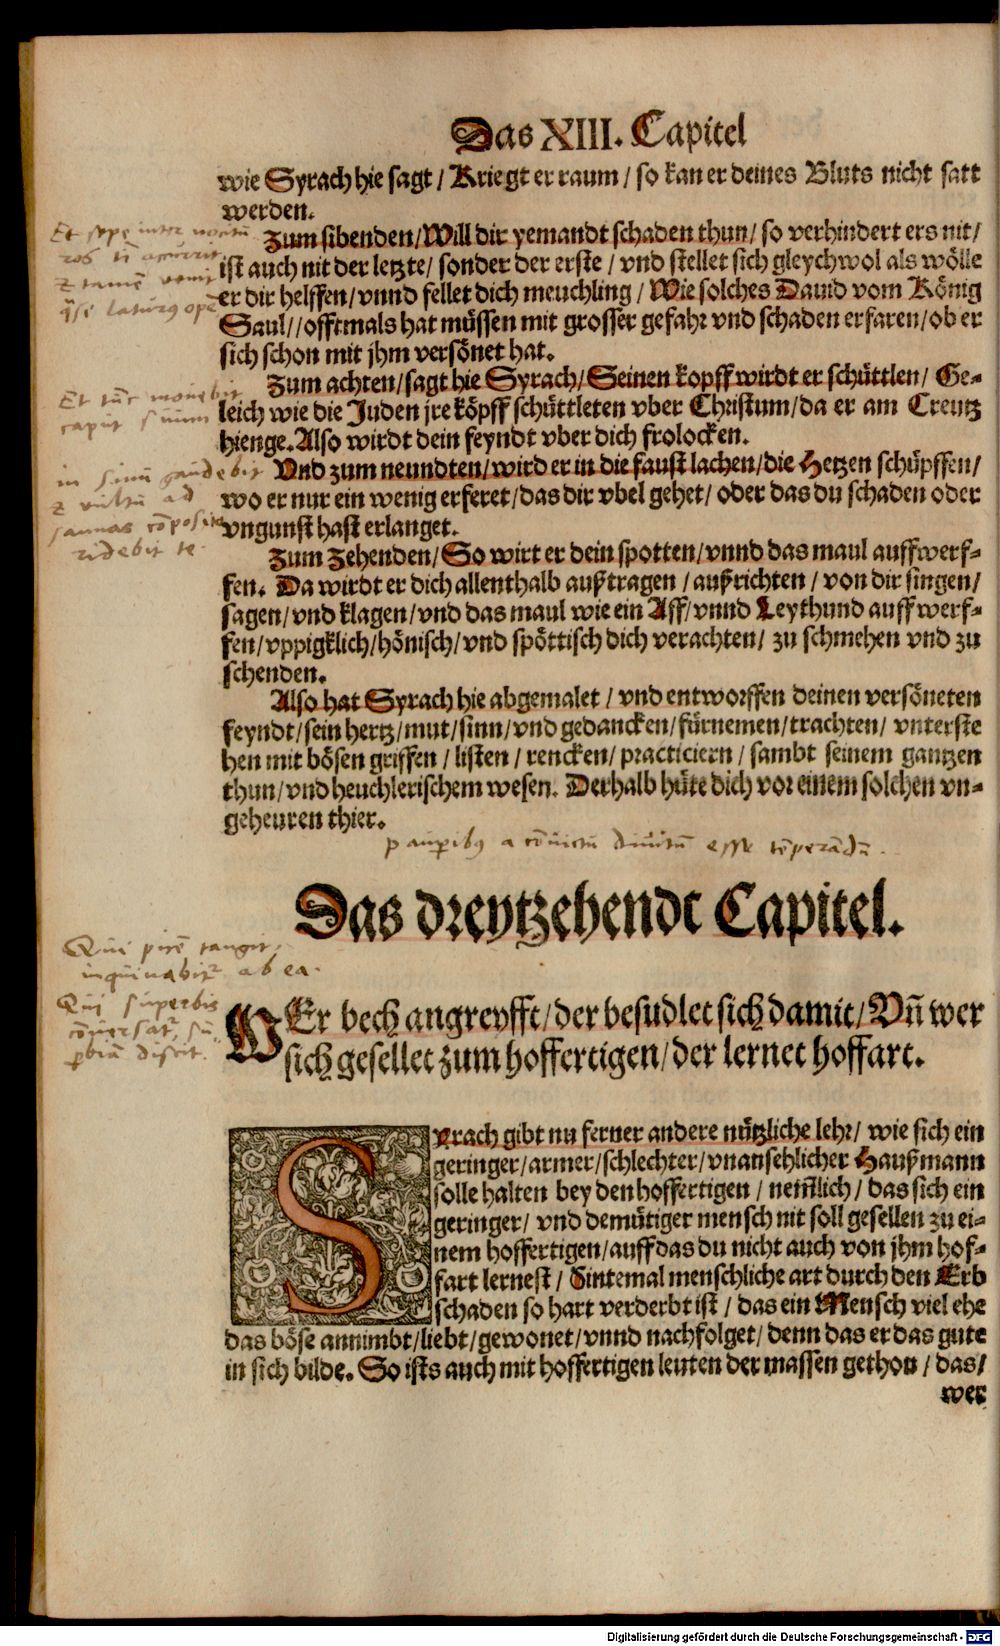 Das XIII. Capitel
wie Syrach hie sagt / Kriegt er raum / so kan er deines Bluts nicht satt
werden.
Zum sibenden / Will dir yemandt schaden thun / so verhindert ers nit /
ist auch nit der letzte / sonder der erste / vnd stellet sich gleychwol als wölle
er dir helffen / vnnd fellet dich meuchling / Wie solches Dauid vom König
Saul / / offtmals hat müssen mit grosser gefahr vnd schaden erfaren / ob er
sich schon mit jhm versönet hat.
Zum achten / sagt hie Syrach / Seinen kopff wirdt er schüttlen / Ge-
leich wie die Juden jre köpff schüttleten vber Christum / da er am Creutz
hienge. Also wirdt dein feyndt vber dich frolocken.
Vnd zum neundten / wird er in die faust lachen / die Hetzen schüpffen /
wo er nur ein wenig erferet / das dir vbel gehet / oder das du schaden oder
vngunst hast erlanget.
Zum Zehenden / So wirt er dein spotten / vnnd das maul auffwerf-
fen. Da wirdt er dich allenthalb außtragen / außrichten / von dir singen /
sagen / vnd klagen / vnd das maul wie ein Aff / vnnd Leythund auffwerf-
fen / vppigklich / hönisch / vnd spöttisch dich verachten / zu schmehen vnd zu
schenden.
Also hat Syrach hie abgemalet / vnd entworffen deinen versöneten
feyndt / sein hertz / mut / sinn / vnd gedancken / fürnemen / trachten / vnterste
hen mit bösen griffen / listen / rencken / practiciern / sambt seinem gantzen
thun / vnd heuchlerischem wesen. Derhalb hüte dich vor einem solchen vn-
geheuren thier.
Et sepe inter
Et tūc mouebit
caput suum
in sinu gaudebit
z vultū ad
sannas cōposito
ridebit te.
pauperibꝰ a cōuictu diuitū esse tēperādū.
Das dreytzehendt Capitel.
Qui picē tangit,
inquinabitʳ ab ea.
Qui superbis
cōuersatʳ, su-
perbiā discit.
WEr bech angreyfft / der besudlet sich damit / Vñ wer
sich gesellet zum hoffertigen / der lernet hoffart.
Syrach gibt nu ferner andere nützliche lehr / wie sich ein
geringer / armer / schlechter / vnansehlicher Haußmann
solle halten bey den hoffertigen / nemlich / das sich ein
geringer / vnd demütiger mensch nit soll gesellen zu ei-
nem hoffertigen / auff das du nicht auch von jhm hof-
fart lernest / Sintemal menschliche art durch den Erb
schaden so hart verderbt ist / das ein Mensch viel ehe
das böse annimbt / liebt / gewonet / vnnd nachfolget / denn das er das gute
in sich bilde. So ists auch mit hoffertigen leuten der massen gethon / das /
wer
Digitalisierung gefördert durch die Deutsche Forschungsgemeinschaft - DFG